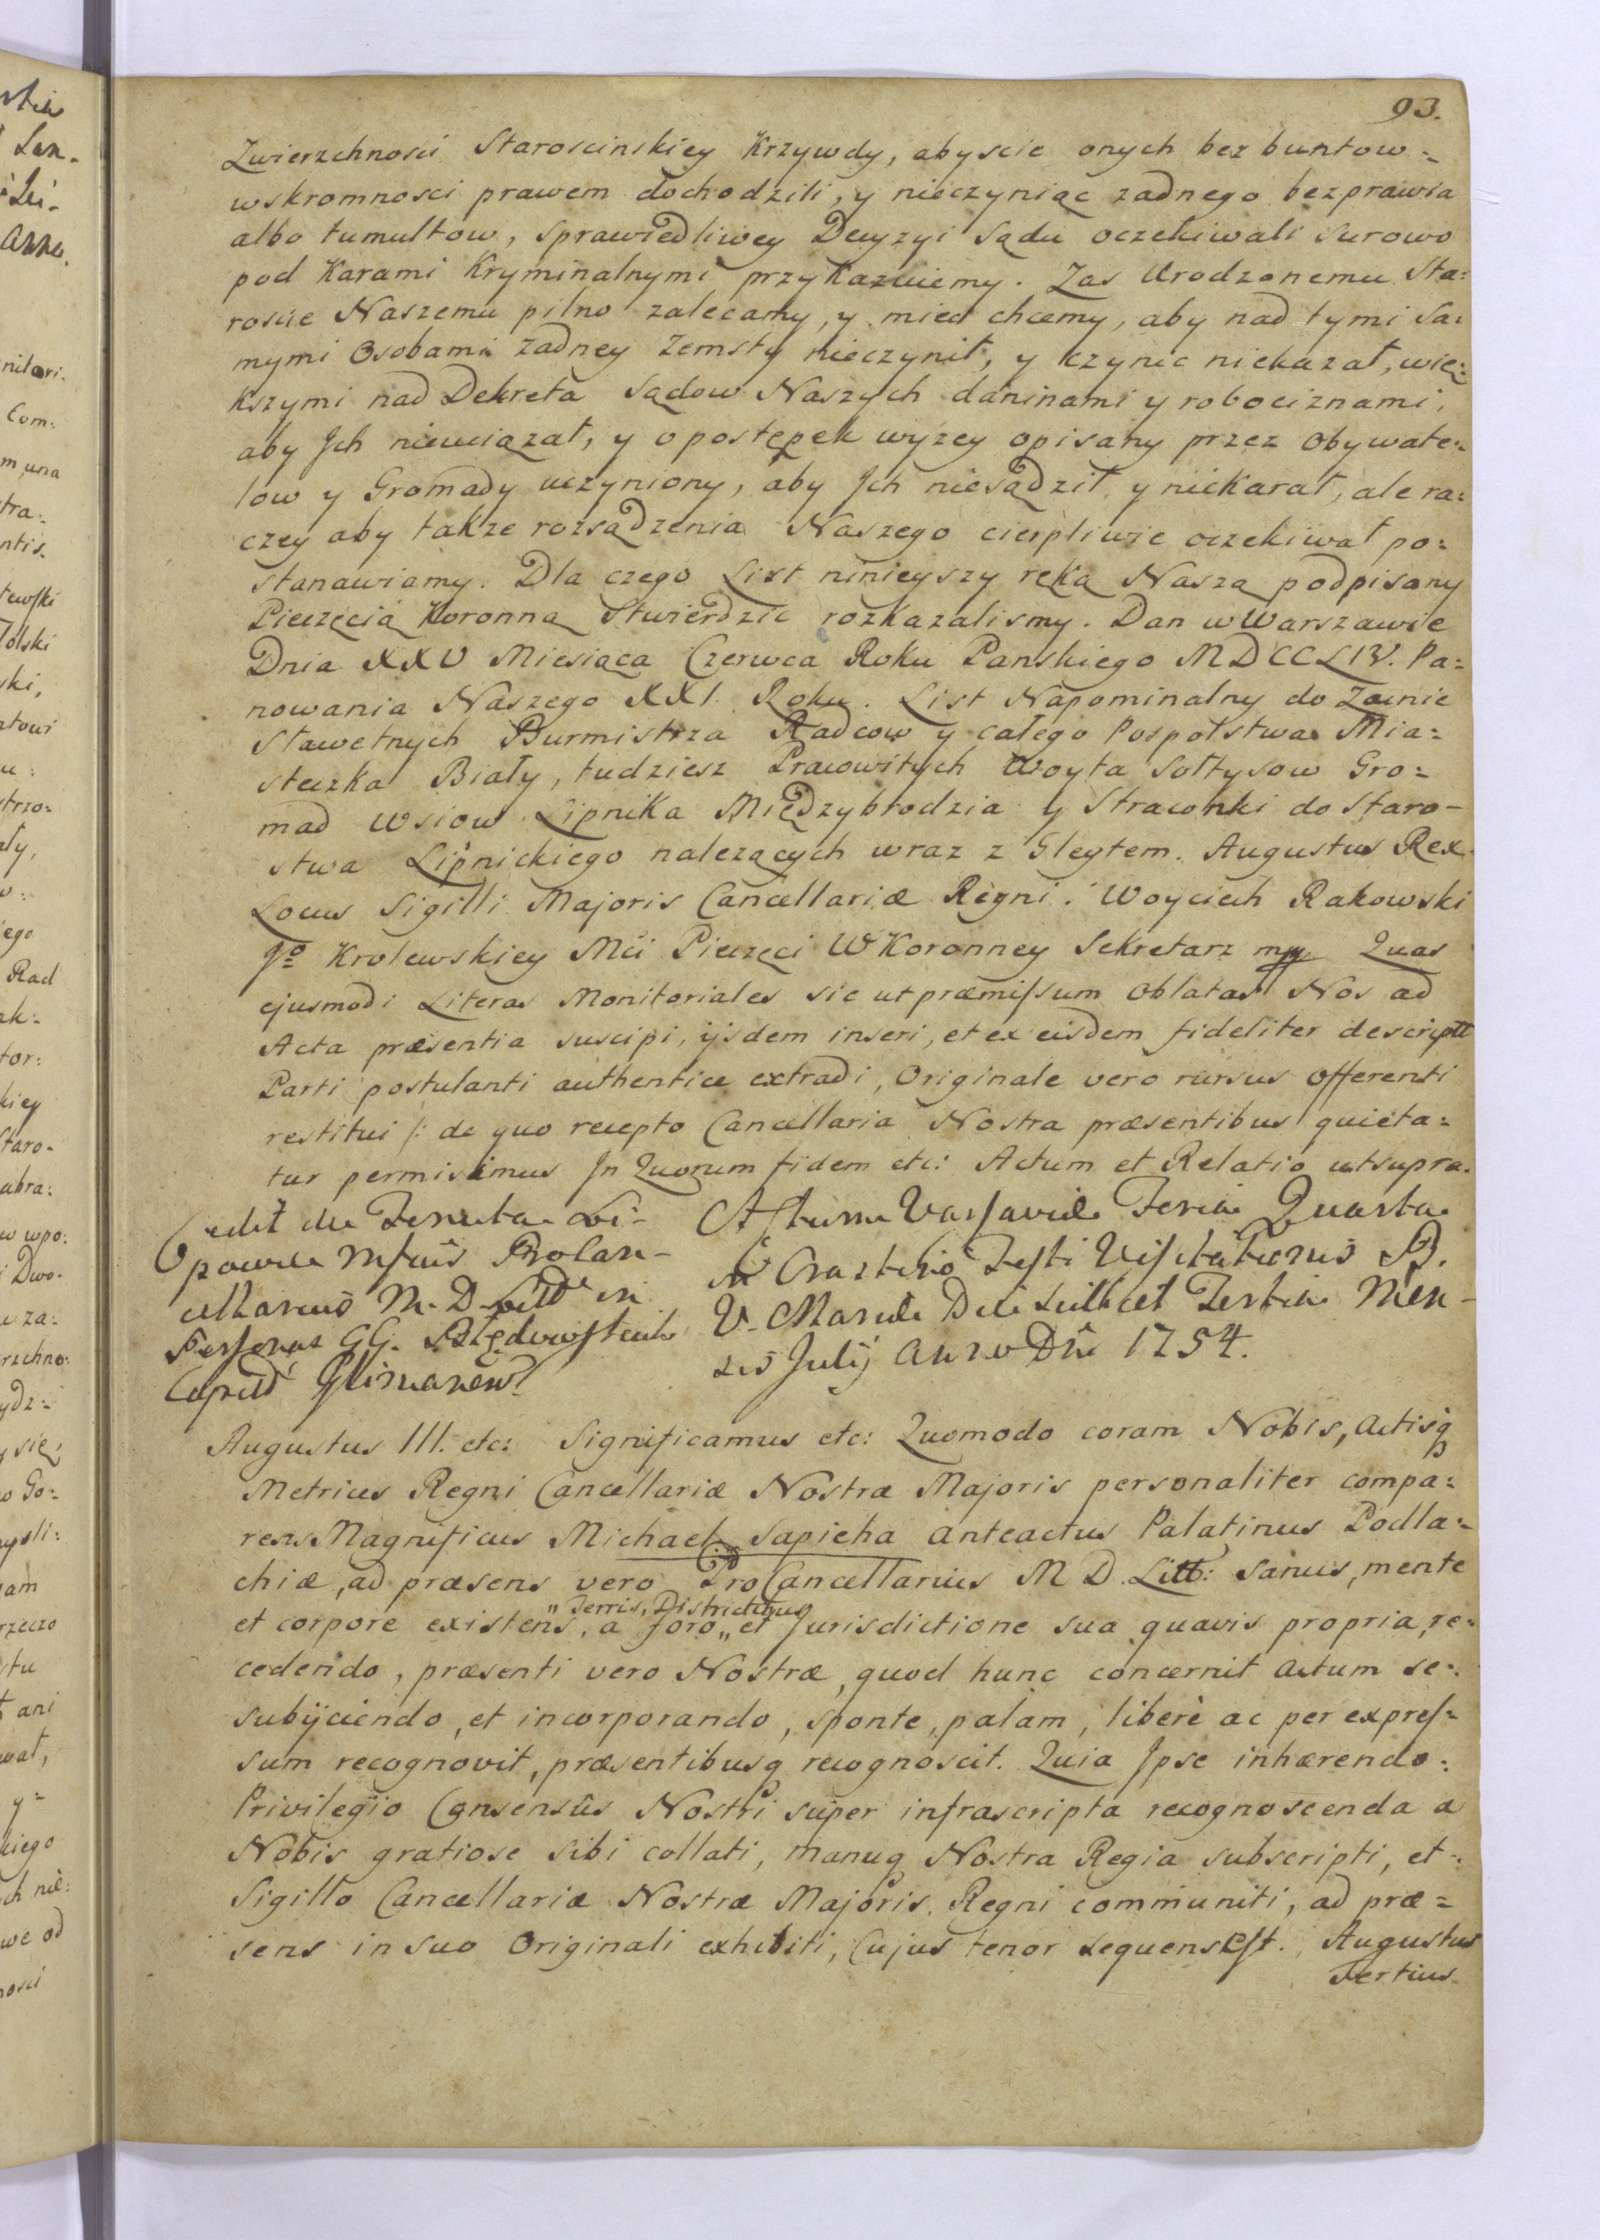 93.
Zwierzchnosci Staroscinskiey Krzywdy, abyscie onych bez buntow=
wskromnosci prawem dochodzili, y nieczyniąc zadnego bezprawia
albo tumultow, sprawiedliwey Decyzyi Sądu oczekiwali surowo
pod Karami Kryminalnymi przykazuiemy. Zas Urodzonemu Sta=
roscie Naszemu pilno zalecamy, y miec chcemy, aby nad tymi sa=
mymi Osobami zadney zemsty nieczynił, y czynic niekazał, wię=
kszymi nad Dekreta Sądow Naszych daninami y robociznami,
aby Jch nieuciązał, y o postępek wyzey opisany przez Obywate=
low y Gromady uczyniony, aby Jch niesądził y niekarał, ale ra=
czey aby takze rozsądzenia Naszego cierpliwie oczekiwał po=
stanawiamy. Dla czego List ninieyszy ręką Naszą podpisany
Pieczęcią Koronną stwierdzic rozkazalismy. Dan w Warszawie
Dnia XXV Miesiąca Czerwca Roku Panskiego MDCCLIV. Pa=
nowania Naszego XXI. Roku. List Napominalny do Zacnie
Sławetnych Burmistrza Radcow y całego Pospolstwa Mia=
steczka Biały, tudziesz Pracowitych Woyta Sołtysow Gro=
mad Wsiow Lipnika Międzybrodzia y Straconki do Staro-
stwa Lipnickiego nalezących wraz z Gleytem. Augustus Rex.
Locus Sigilli Majoris Cancellariæ Regni. Woyciech Rakowski
Jo Krolewskiey Mci Pieczęci W Koronney Sekretarz mp Quas
ejusmodi Literas Monitoriales sic ut præmissum Oblatas Nos ad
Acta præsentia suscipi, ijsdem inseri, et ex eisdem fideliter descriptt
Parti postulanti authentice extradi, Originale vero rursus offerenti
restitui /: de quo recepto Cancellaria Nostra præsentibus quieta=
tur permisimus Jn Quorum fidem etc: Actum et Relatio ut supra.
Cedit de Tenuta Li-
powce Mfcus Procan-
cellarius M. D. Litt in
Personas GG.
Capitt
Actum Varsaviæ Feria Quarta
in Crastino Festi Visitationis B.
V. Mariæ Die scilicet Tertia Men-
sis Julij Anno Dni 1754.
Augustus III. etc: Significamus etc: Quomodo coram Nobis, Actisq
Metrices Regni Cancellariæ Nostræ Majoris personaliter compa=
rens Magnificus Michael Sapieha anteactus Palatinus Podla=
chiæ, ad præsens vero ProCancellarius M D. Litt: sanus, mente
et corpore existens, a foro „ Terris, Districtibus „ et Jurisdictione sua quavis propria, re=
cedendo, præsenti vero Nostræ, quod hunc concernit Actum se=
subijciendo, et incorporando, sponte, palam, liberè ac per expres=
sum recognovit, præsentibusq recognoscit. Quia Jpse inhærendo=
Privilegio Consensûs Nostri super infrascripta recognoscenda a
Nobis gratiose sibi collati, manuq Nostra Regia subscripti, et=
Sigillo Cancellariæ Nostræ Majoris Regni communiti, ad præ=
sens in suo Originali exhibiti, Cujus tenor sequens Est. Augustus
Tertius